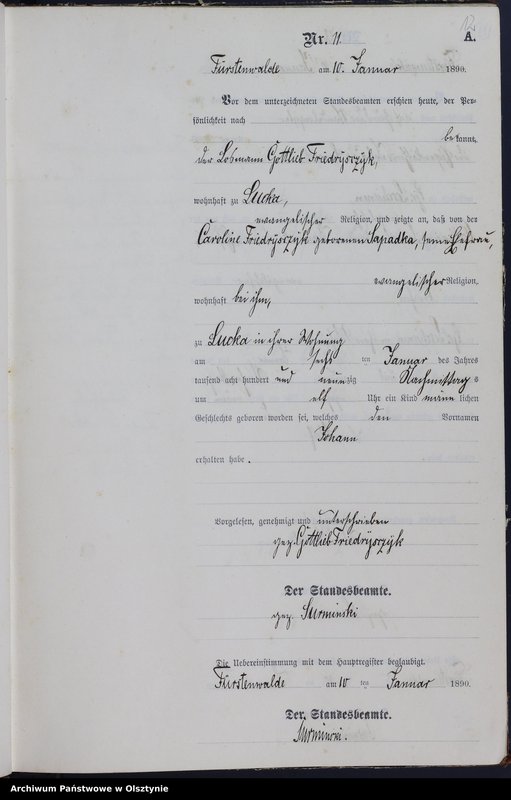 12
Nr. 11
A.
Fürstenwalde am 10. Januar 1890.
Vor dem unterzeichneten Standesbeamten erschien heute, der Per-
sönlichkeit nach
bekannt,
der Losmann Gottlieb Friedrysczyk,
wohnhaft zu Lucka,
evangelischer Religion, und zeigte an, daß von der
Caroline Friedrysczyk geborenen Sapadka, seine Ehefrau,
evangelischer Religion,
wohnhaft bei ihm,
zu Lucka in ihrer Wohnung
am sechs ten Januar des Jahres
tausend acht hundert und neunzig Nachmittag s
um elf Uhr ein Kind männ lichen
Geschlechts geboren worden sei, welches den Vornamen
Johann
erhalten habe.
Vorgelesen, genehmigt und unterschrieben
gez. Gottlieb Friedrysczyk
Der Standesbeamte.
gez. Surminski
Die Uebereinstimmung mit dem Hauptregister beglaubigt.
Fürstenwalde am 10 ten Januar 1890.
Der Standesbeamte.
Surminski.
Archiwum Państwowe w Olsztynie